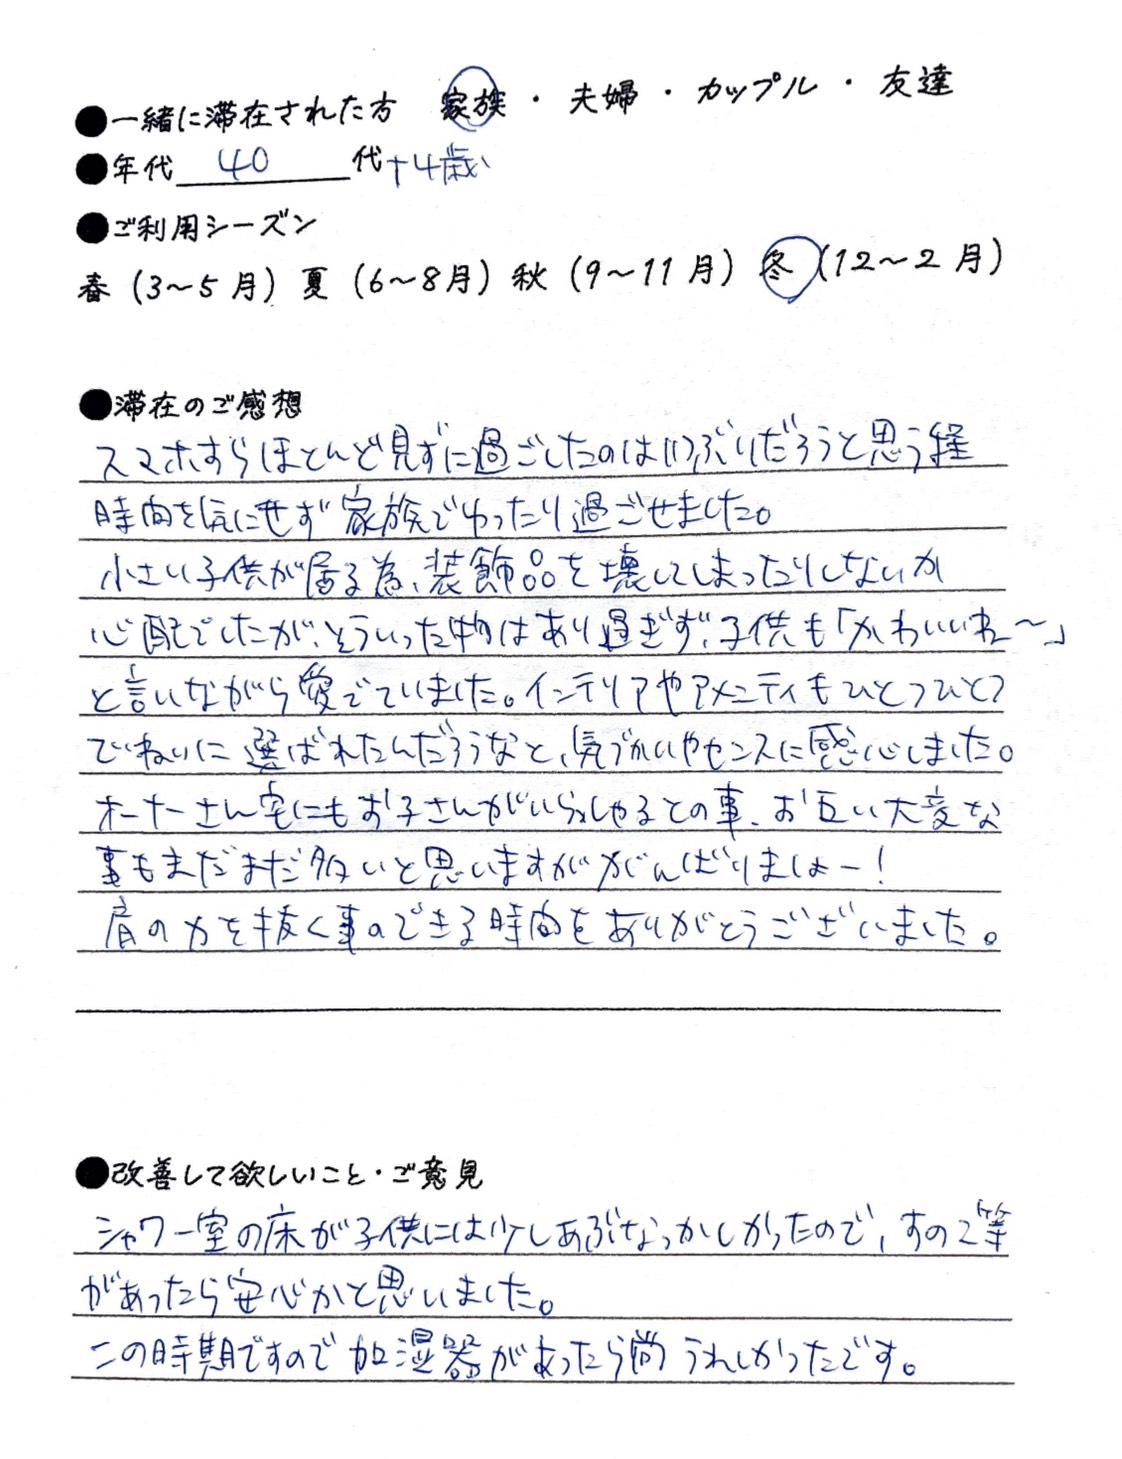 ●一緒に滞在された方 家族・夫婦・カップル・友達
●年代 40 代+4歳
●ご利用シーズン
春(3〜5月)夏(6〜8月)秋(9〜11月)冬(12〜2月)
●滞在のご感想
スマホすらほとんど見ずに過ごしたのはいつぶりだろうと思う程
時間を気にせず家族でゆったり過ごせました。
小さい子供が居る為、装飾品を壊してしまったりしないか
心配でしたが、そういった物はあり過ぎず、子供も「かわいいねー〜」
と言いながら愛でていました。インテリアやアメニティもひとつひとつ
ていねいに選ばれたんだろうなと、気づかいやセンスに感心しました。
オーナーさん宅にもお子さんがいらっしゃるとの事、お互い大変な
事もまだまだ多いと思いますががんばりましょー!
肩の力を抜く事のできる時間をありがとうございました。
●改善して欲しいこと・ご意見
シャワー室の床が子供には少しあぶなっかしかったので、すのこ等
があったら安心かと思いました。
この時期ですので加湿器があったら尚うれしかったです。